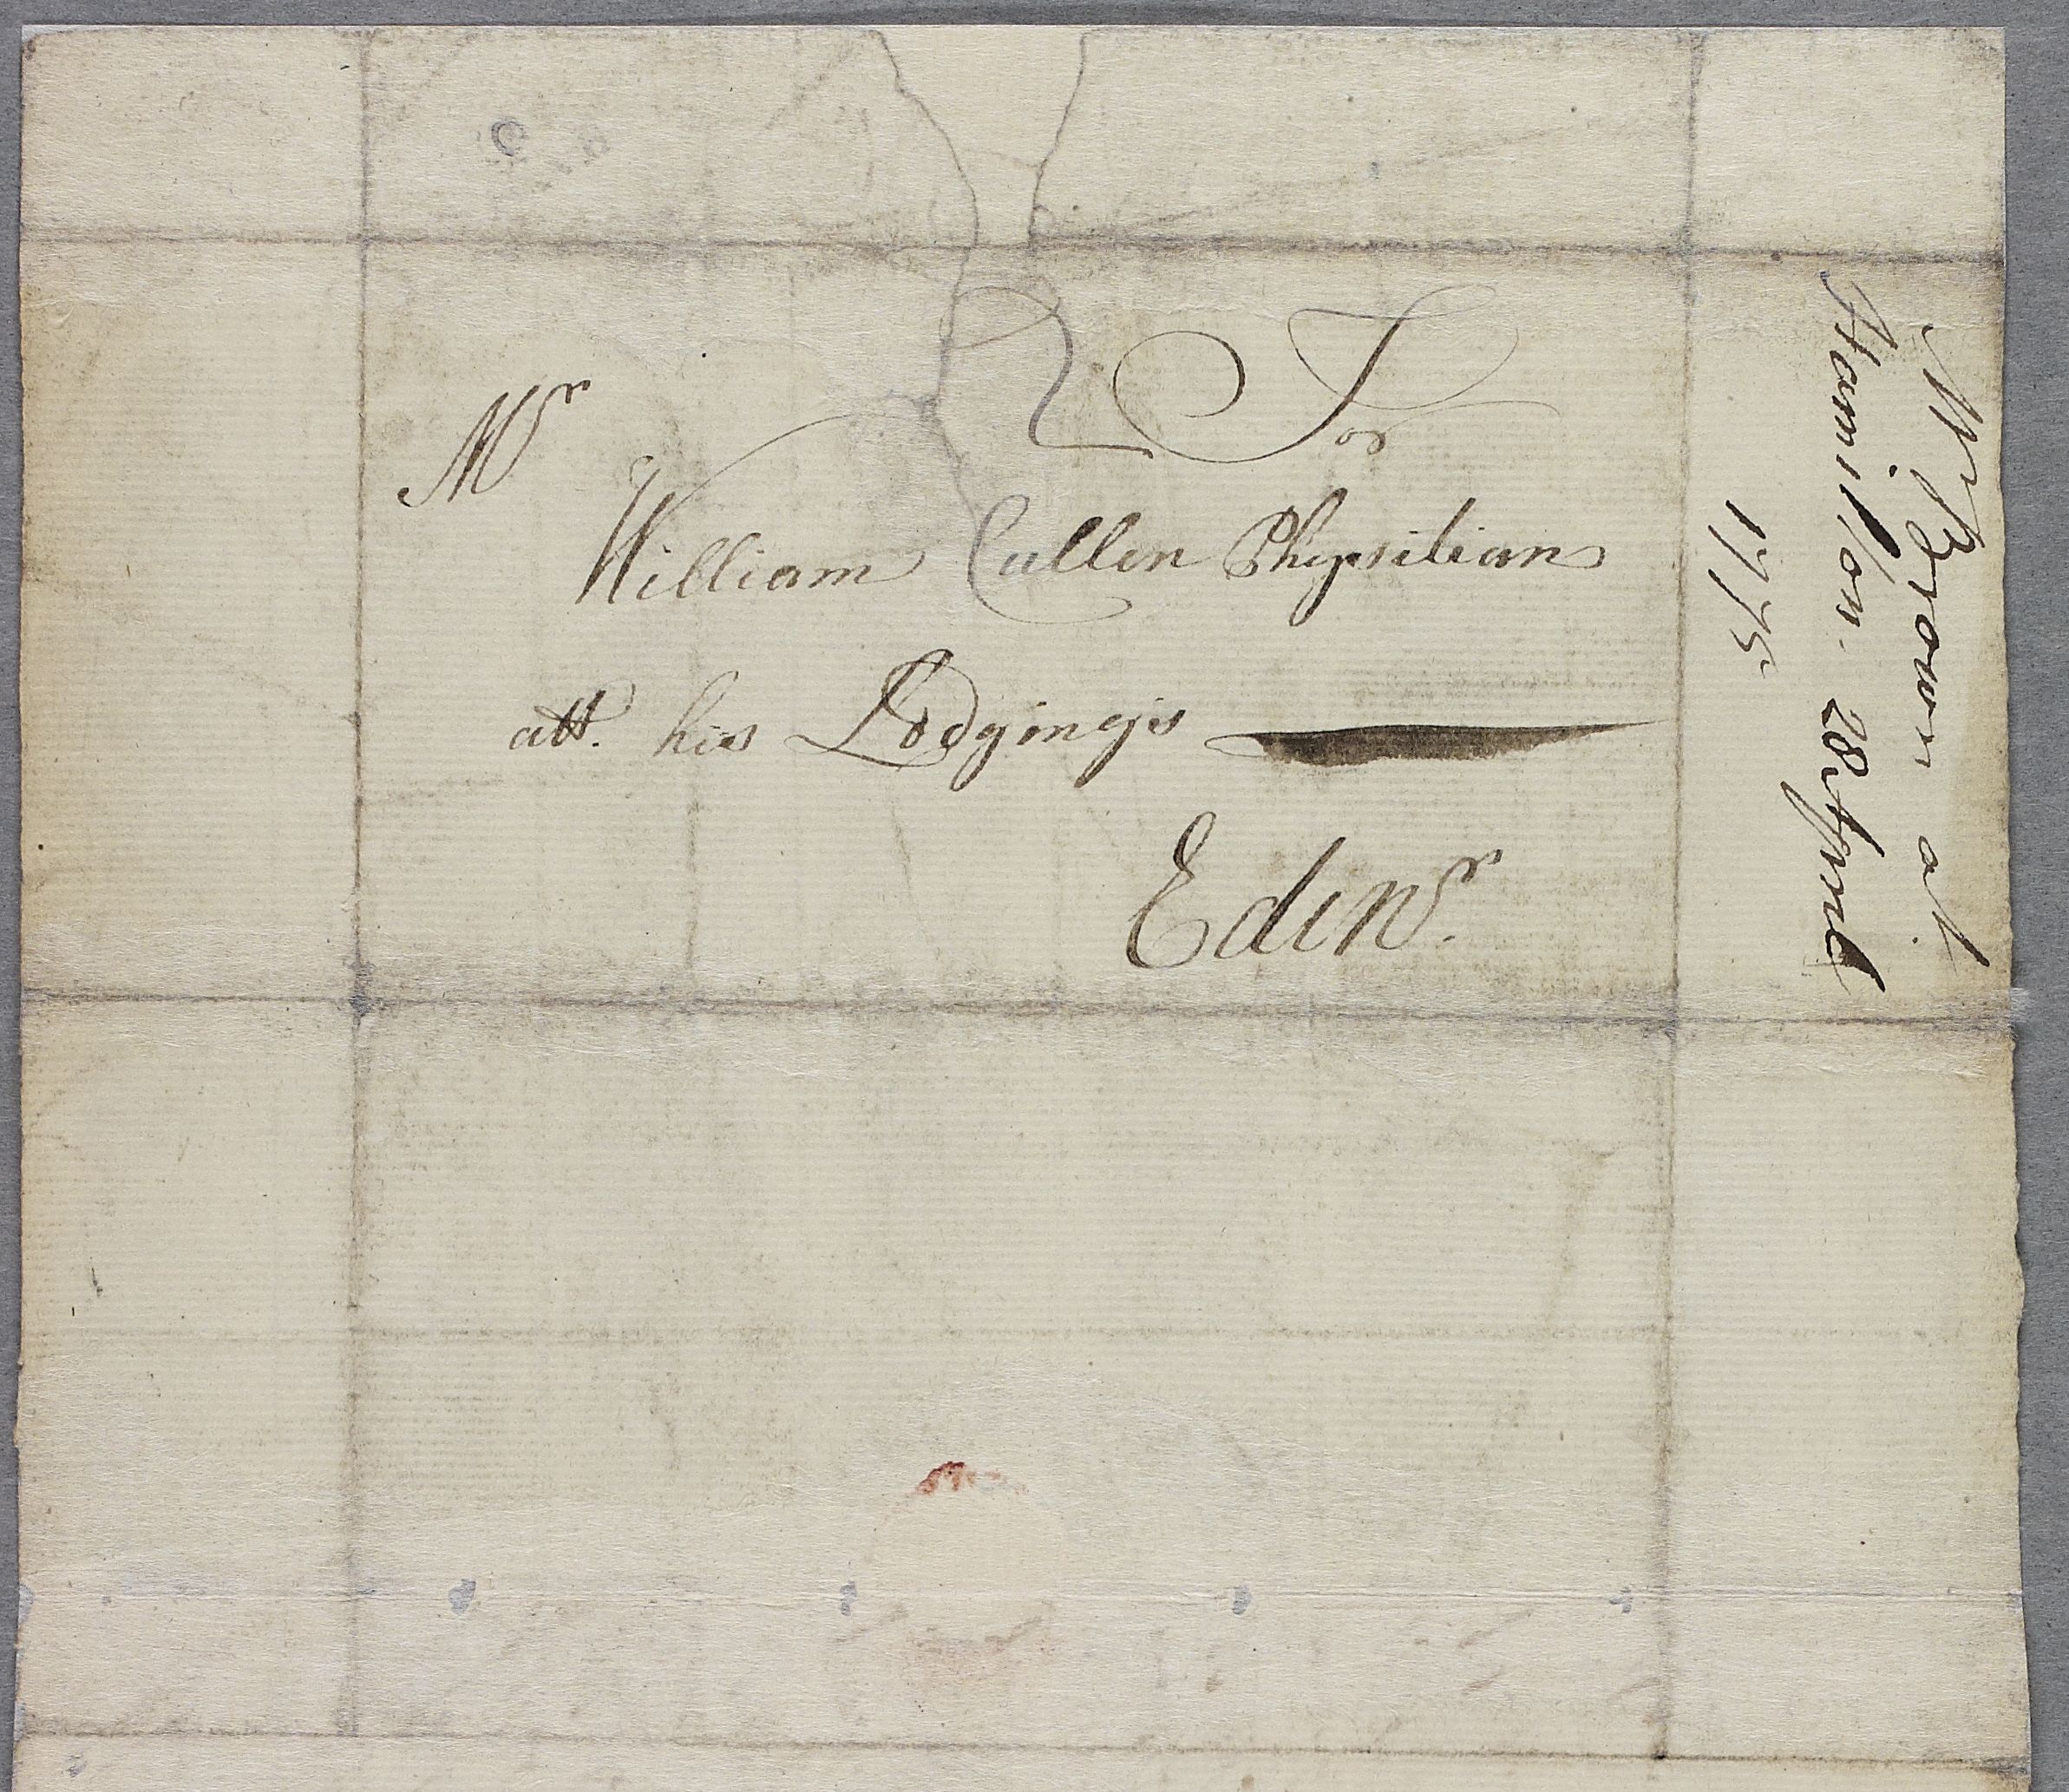 For
Mr
William Cullen Physitian
att. his Lodgings
Edinr.
Mr Brown at
Hamilton. 28 Aprile
1775